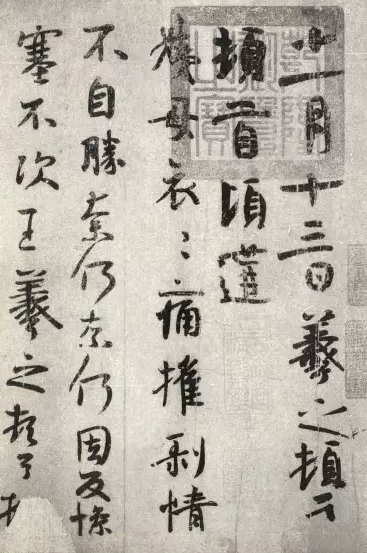 十一月十三日羲之頓首
頓首頃遘
姨母哀〻痛摧剝情
不自勝奈何奈何因反慘
塞不次王羲之頓首
乾隆御覽之寶